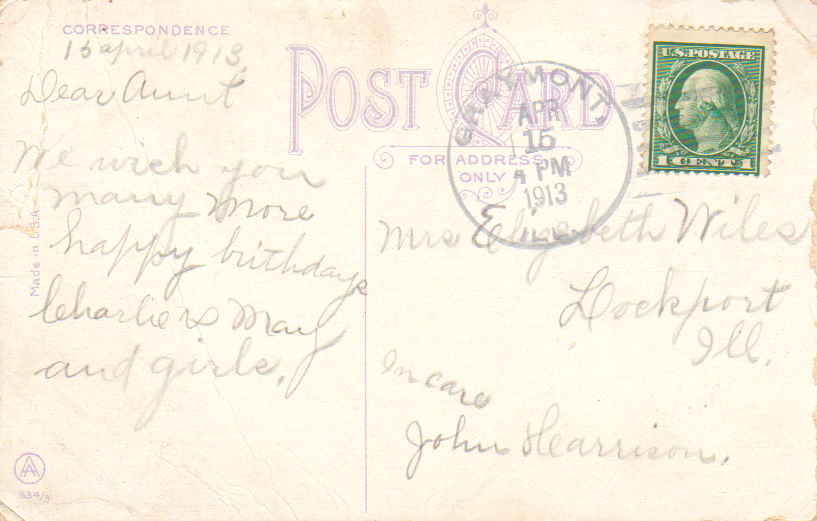 CORRESPONDENCE
15 april 1913.
Dear Aunt
We wish you
many more
happy birthdays
Charlie & May
and girls.
Made in U.S.A.
AA
POST CARD
FOR ADDRESS
ONLY
GRAYMONT,
APR
15
4 PM
1913
ILL.
U.S. POSTAGE
1 CENT 1
Mrs Elizabeth Wiles
Lockport
Ill.
In care
John Hearrison.